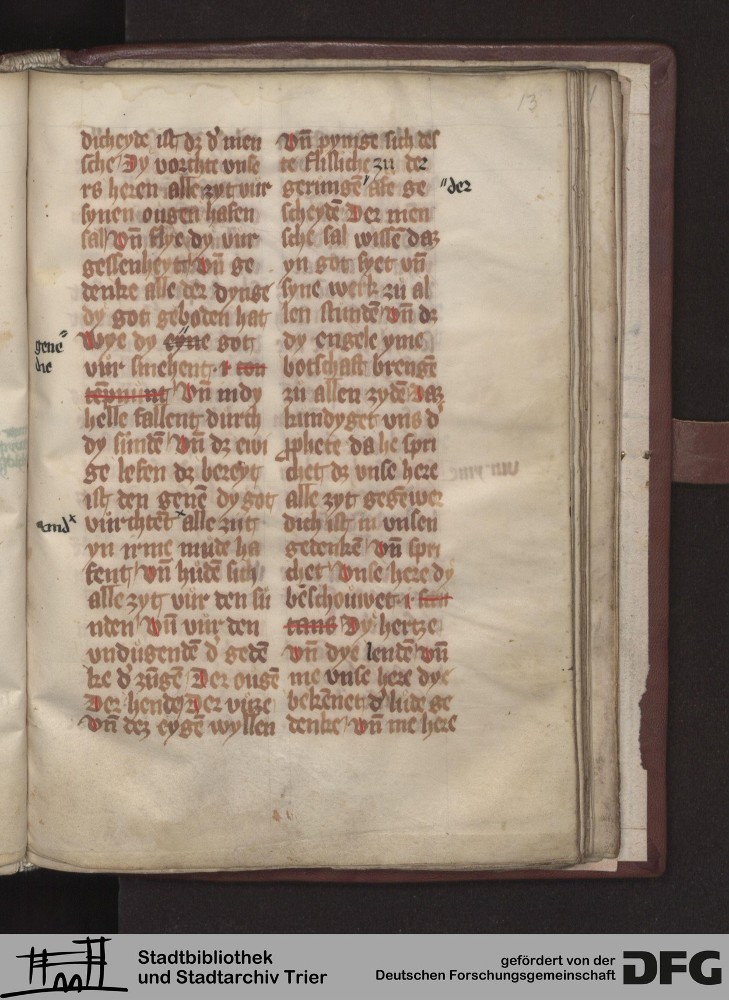 13
dicheyde ist dz d' men
sche Dy vorchte vnse
rs heren alle zyt vur
synen ougen hafen
sal Vn̄ flye dy vur
gessenheyt Vn̄ ge
denke alle der dynge
dy got geboden hat
Wye dy eyne got
genē
die
vür smehent ·i· con
tēpnunt Vn̄ in dy
helle fallent durch
dy sundē Vn̄ dz ewi
ge lefen dz bereyt
ist den genē dy got
vürchtēt alle zut
und
yn irme mude ha
fent Vn̄ hudē sich
alle zyt vür den sü
nden Vn̄ vür den
vndugendē d' gedē
ke d' zügē Der ougē
Der hende Der vüze
Vn̄ dez eygē wyllen
Vn̄ pynige sich des
te flisliche zu der
gerungē afe ge
der
scheydē Der men
sche sal wissē daz
yn got syet vn̄
syne werk zu al
len stundē Vn̄ dz
dy engele yme
botschaft brengē
zu allen zydē Daz
kundyget vns d'
pphete da he spri
chet dz vnse here
alle zyt gegēwer
dich ist in vnsen
gedenkē Vn̄ spri
chet Vnse here dy
beschouwet ·i· scru
tans Dy hertze
Vn̄ dye lendē Vn̄
me vnse here dye
bekēnet d' lude ge
denke Vn̄ me here
Stadtbibliothek
und Stadtarchiv Trier
gefördert von der
Deutschen Forschungsgemeinschaft
DFG